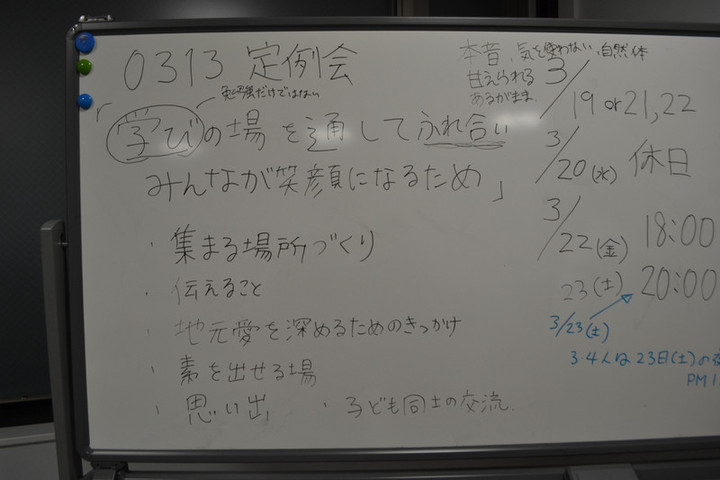 0313 定例会
勉強だけではない
「学びの場を通してふれ合い
みんなが笑顔になるため」
・集まる場所づくり
・伝えること
・地元愛を深めるためのきっかけ
・素を出せる場
・思い出 ・子ども同士の交流.
本音、気を使わない、自然体
甘えられる
あるがまま
3/19 or 21,22
3/20(水) 休日
3/22(金) 18:00
23(土) 20:00
3/23(土)
3.4人は23日(土)の
PM1